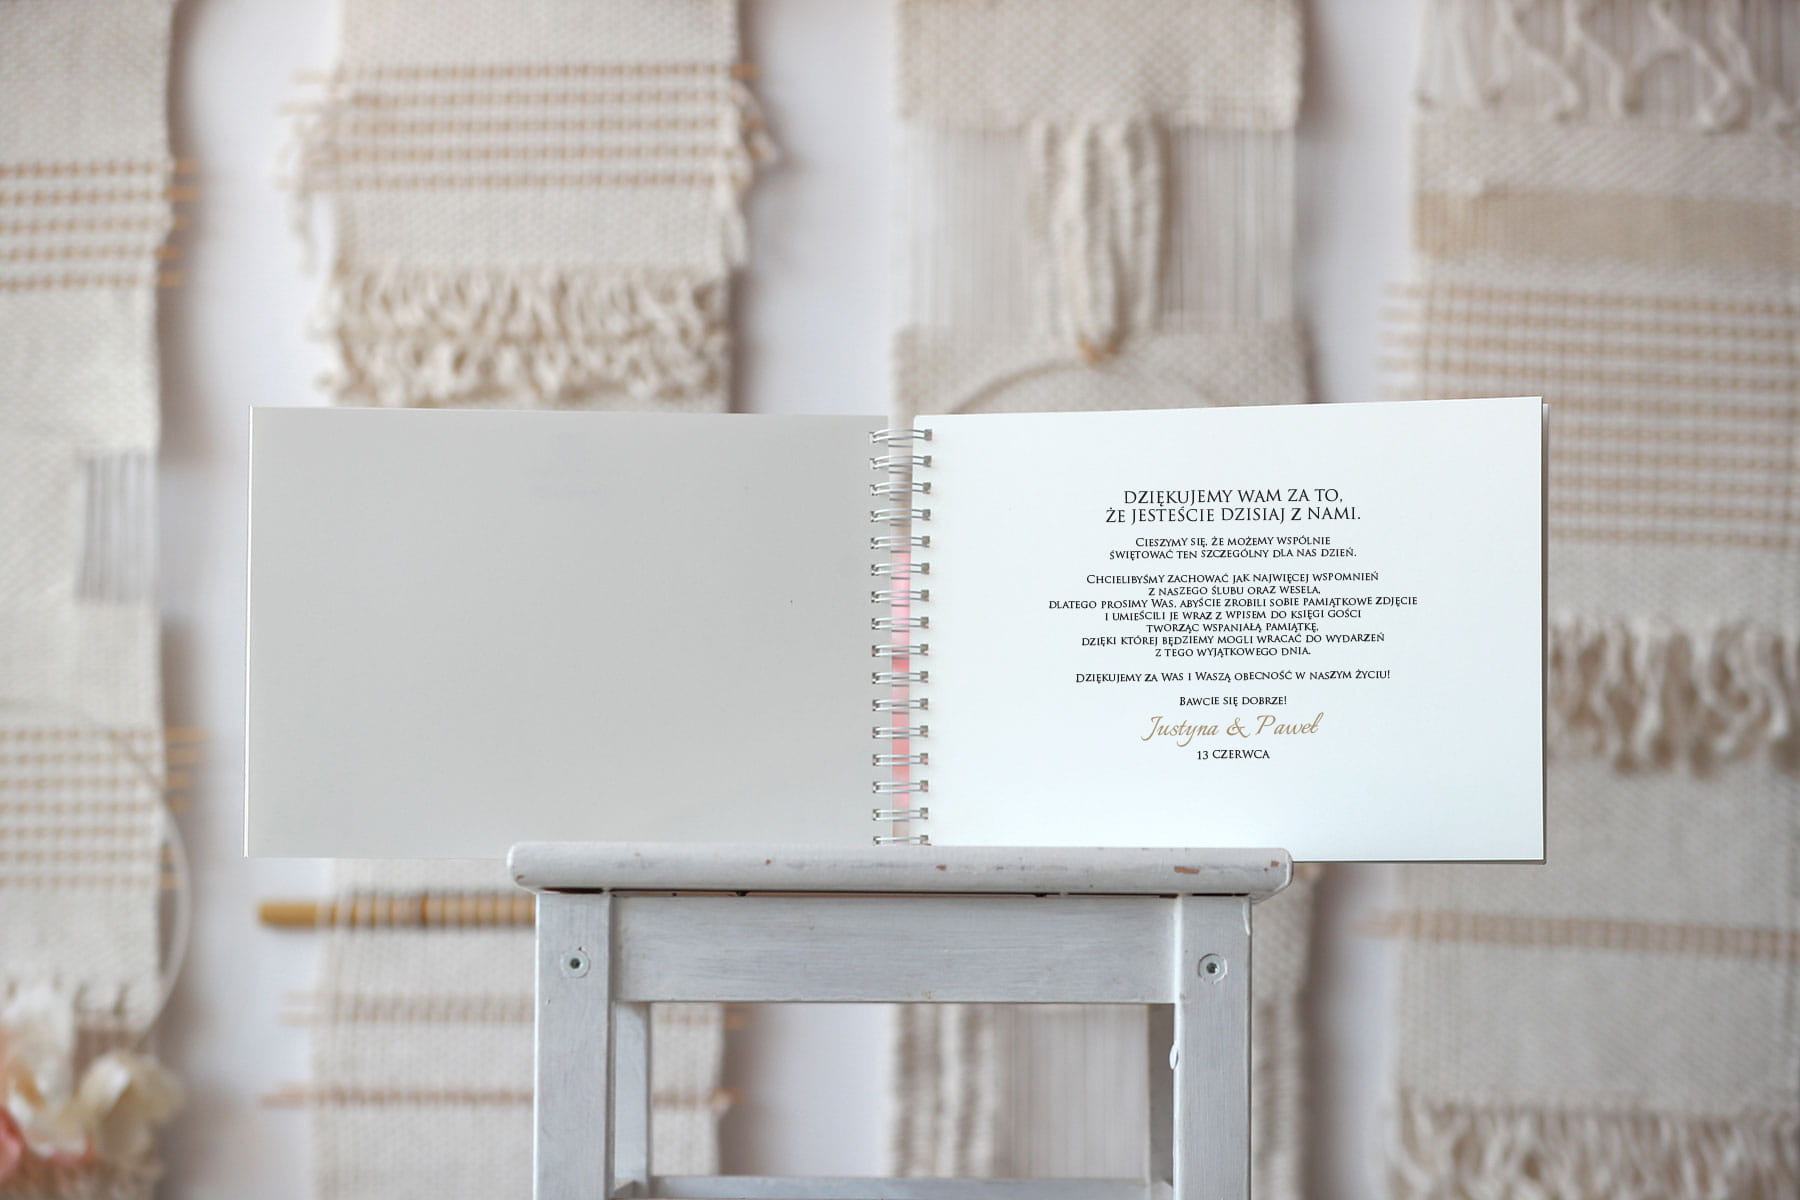 DZIĘKUJEMY WAM ZA TO,
ŻE JESTEŚCIE DZISIAJ Z NAMI.
CIESZYMY SIĘ, ŻE MOŻEMY WSPÓLNIE
ŚWIĘTOWAĆ TEN SZCZEGÓLNY DLA NAS DZIEŃ.
CHCIELIBYŚMY ZACHOWAĆ JAK NAJWIĘCEJ WSPOMNIEŃ
Z NASZEGO ŚLUBU ORAZ WESELA,
DLATEGO PROSIMY WAS, ABYŚCIE ZROBILI SOBIE PAMIĄTKOWE ZDJĘCIE
I UMIEŚCILI JE WRAZ Z WPISEM DO KSIĘGI GOŚCI
TWORZĄC WSPANIAŁĄ PAMIĄTKĘ,
DZIĘKI KTÓREJ BĘDZIEMY MOGLI WRACAĆ DO WYDARZEŃ
Z TEGO WYJĄTKOWEGO DNIA.
DZIĘKUJEMY ZA WAS I WASZĄ OBECNOŚĆ W NASZYM ŻYCIU!
BAWCIE SIĘ DOBRZE!
Justyna & Paweł
13 CZERWCA